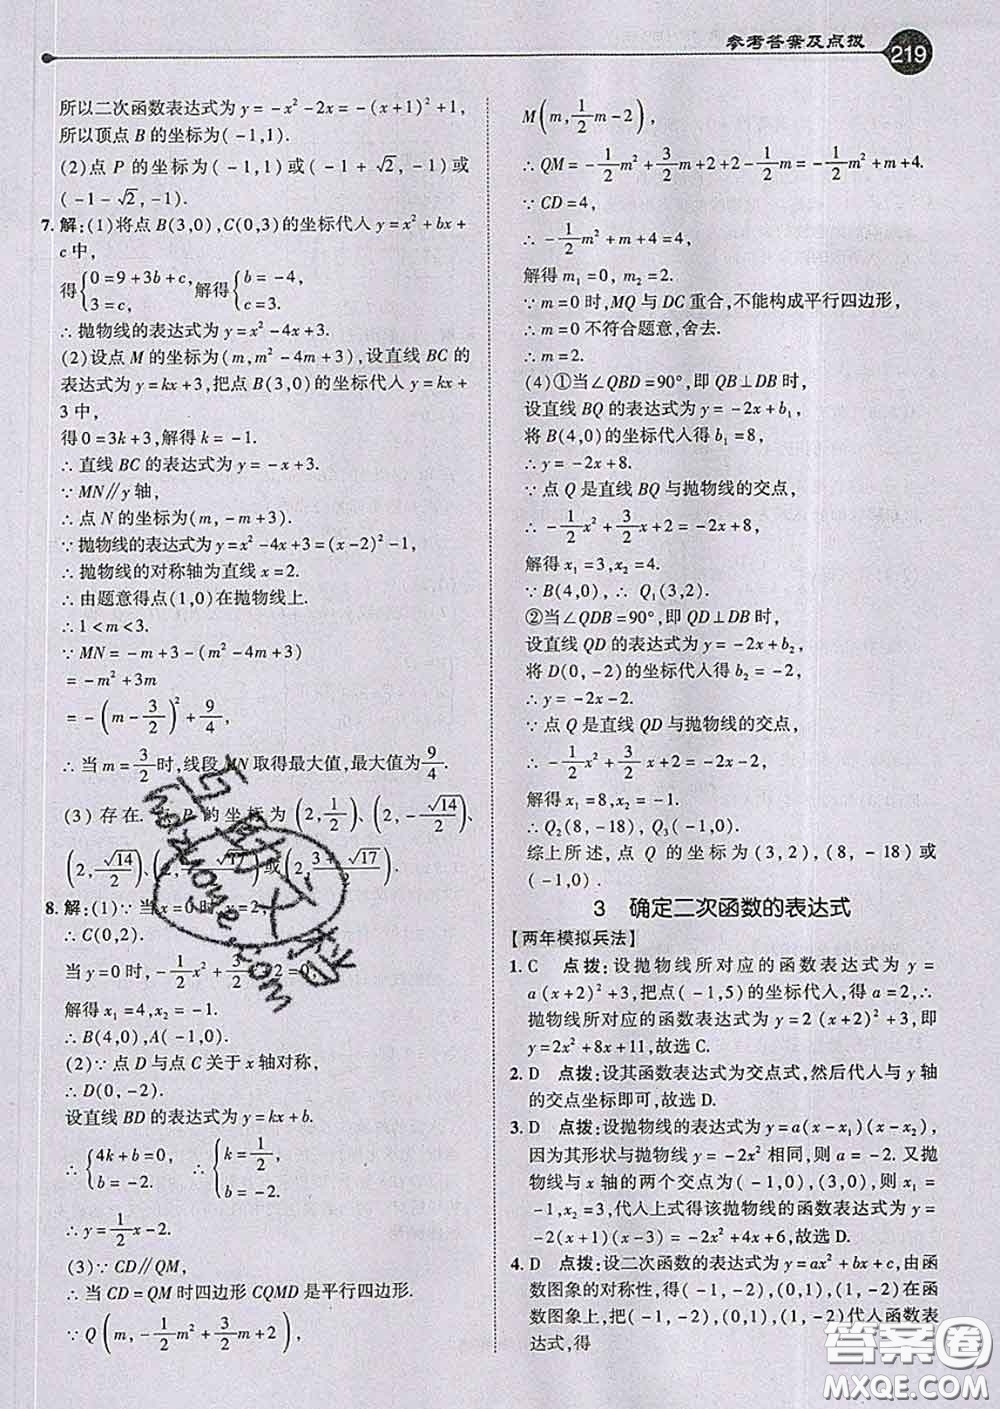 参考答案及点拨 219
所以二次函数表达式为 y=-x²-2x=-(x+1)²+1,
所以顶点 B 的坐标为(-1,1).
(2)点 P 的坐标为(-1,1)或(-1+√2,-1)或
(-1-√2,-1).
7. 解:(1)将点 B(3,0),C(0,3)的坐标代人 y=x²+bx+
c 中,
得{0=9+3b+c, 3=c, 解得{b=-4, c=3.
∴ 抛物线的表达式为 y=x²-4x+3.
(2)设点 M 的坐标为(m,m²-4m+3),设直线 BC 的
表达式为 y=kx+3,把点 B(3,0)的坐标代人 y=kx+
3 中,
得 0=3k+3,解得 k=-1.
∴ 直线 BC 的表达式为 y=-x+3.
∵ MN∥y 轴,
∴ 点 N 的坐标为(m,-m+3).
∵ 抛物线的表达式为 y=x²-4x+3=(x-2)²-1,
∴ 抛物线的对称轴为直线 x=2.
∴ 由题意得点(1,0)在抛物线上.
∴ 1<m<3.
∵ MN=-m+3-(m²-4m+3)
=-m²+3m
=-(m-3/2)²+9/4,
∴ 当 m=3/2时,线段 MN 取得最大值,最大值为9/4.
(3)存在. P 的坐标为(2,1/2)、(2,-√14/2)、
(2,√14/2)、 √17 或(2,3+√17/2).
8. 解:(1)∵ 当 x=0时,y=2,
∴ C(0,2).
当 y=0 时,-1/2x²+3/2x+2=0,
解得 x₁=4,x₂=-1.
∴ B(4,0),A(-1,0).
(2)∵ 点 D 与点 C 关于 x 轴对称,
∴ D(0,-2).
设直线 BD 的表达式为 y=kx+b.
∴{4k+b=0, b=-2. ∴{k=1/2, b=-2.
∴ y=1/2x-2.
(3)∵ CD∥QM,
∴ 当 CD=QM 时四边形 CQMD 是平行四边形.
∵ Q(m,-1/2m²+3/2m+2),
M(m,1/2m-2),
∴ QM=-1/2m²+3/2m+2+2-1/2m=-1/2m²+m+4.
∵ CD=4,
∴ -1/2m²+m+4=4,
解得 m₁=0, m₂=2.
∵ m=0 时,MQ 与 DC 重合,不能构成平行四边形,
∴ m=0 不符合题意,舍去.
∴ m=2.
(4)①当∠QBD=90°,即 QB⊥DB 时,
设直线 BQ 的表达式为 y=-2x+b₁,
将 B(4,0)的坐标代人得 b₁=8,
∴ y=-2x+8.
∵ 点 Q 是直线 BQ 与抛物线的交点,
∴ -1/2x²+3/2x+2=-2x+8,
解得 x₁=3,x₂=4.
∵ B(4,0), ∴ Q₁(3,2).
②当∠QDB=90°,即 QD⊥DB 时,
设直线 QD 的表达式为 y=-2x+b₂,
将 D(0,-2)的坐标代人得 b₂=-2,
∴ y=-2x-2.
∵ 点 Q 是直线 QD 与抛物线的交点,
∴ -1/2x²+3/2x+2=-2x-2,
解得 x₁=8,x₂=-1.
∴ Q₂(8,-18), Q₃(-1,0).
综上所述,点 Q 的坐标为(3,2),(8,-18)或
(-1,0).
3 确定二次函数的表达式
【两年模拟兵法】
1. C 点拨:设抛物线所对应的函数表达式为 y=
a(x+2)²+3,把点(-1,5)的坐标代人,得 a=2,∴
抛物线所对应的函数表达式为 y=2(x+2)²+3,即
y=2x²+8x+11,故选 C.
2. D 点拨:设其函数表达式为交点式,然后代人与 y 轴
的交点坐标即可,故选 D.
3. D 点拨:设抛物线的表达式为 y=a(x-x₁)(x-x₂),
因为其形状与抛物线 y=-2x² 相同,则 a=-2. 又抛
物线与 x 轴的两个交点为(-1,0),(3,0),则 x₁=
-1,x₂=3,代人上式得该抛物线的表达式为 y=
-2(x+1)(x-3)=-2x²+4x+6,故选 D.
4. D 点拨:设二次函数的表达式为 y=ax²+bx+c,由函
数图象的对称性,得(-1,-2),(0,1),(1,-2)在函
数图象上,把(-1,-2),(0,1),(1,-2)代人函数表
达式,得
答案圈
MXQE.COM